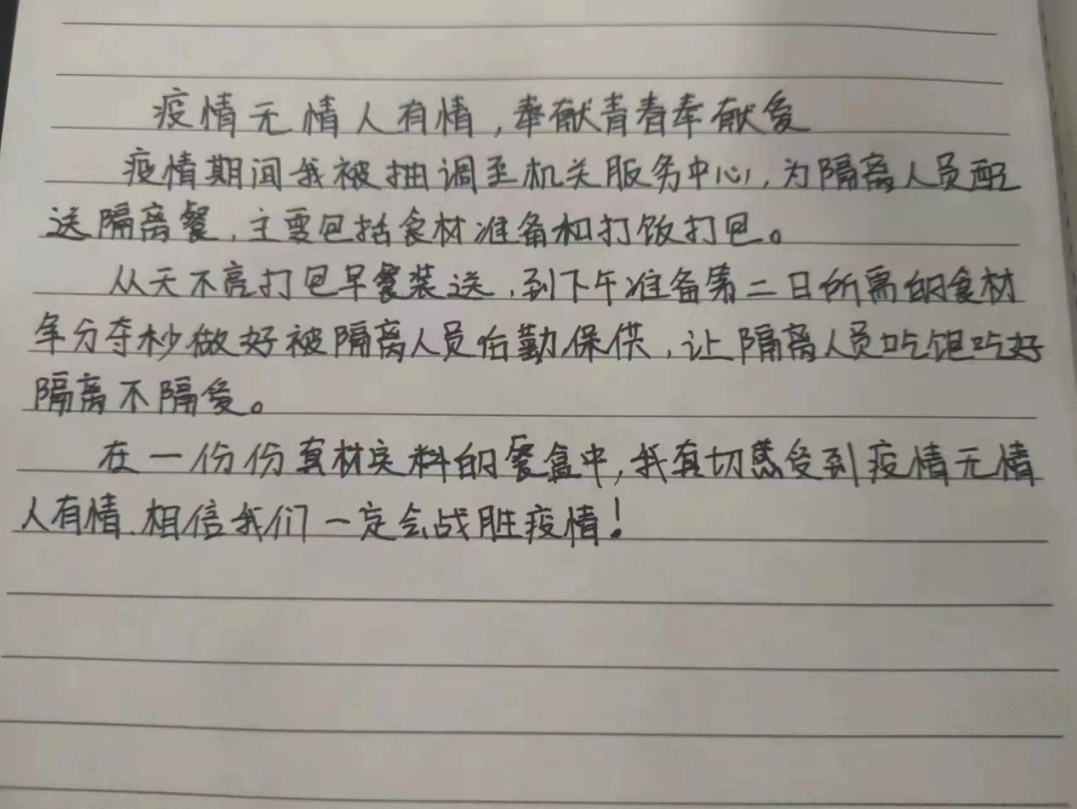 疫情无情人有情，奉献青春奉献爱
疫情期间我被抽调至机关服务中心，为隔离人员配
送隔离餐，主要包括食材准备和打饭打包。
从天不亮打包早餐装送，到下午准备第二日所需的食材
争分夺秒做好被隔离人员后勤保供，让隔离人员吃饱吃好
隔离不隔爱。
在一份份真材实料的餐盒中，我真切感受到疫情无情
人有情．相信我们一定会战胜疫情！